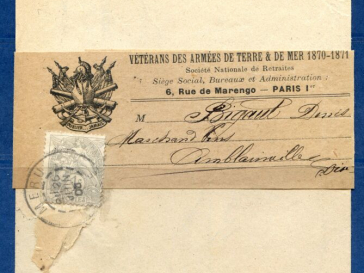 VÉTÉRANS DES ARMÉES DE TERRE & DE MER 1870-1871
Société Nationale de Retraites
Siège Social, Bureaux et Administration :
6, Rue de Marengo — PARIS 1er
M Bigault Denis
Marchand
Amblainville
Oise